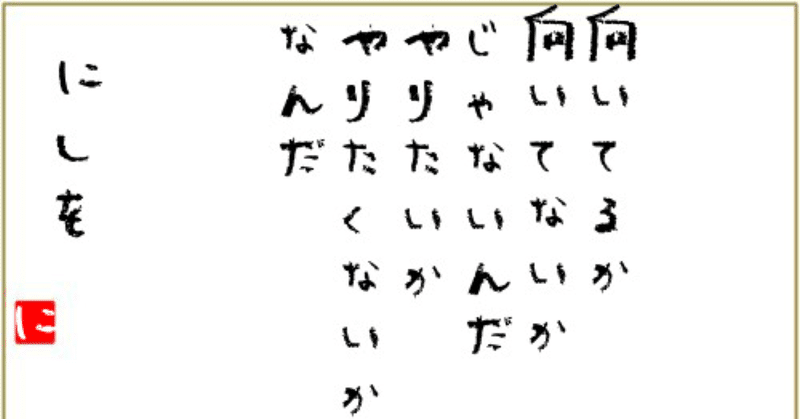 向いてるか
向いてないか
じゃないんだ
やりたいか
やりたくないか
なんだ
にしを
に